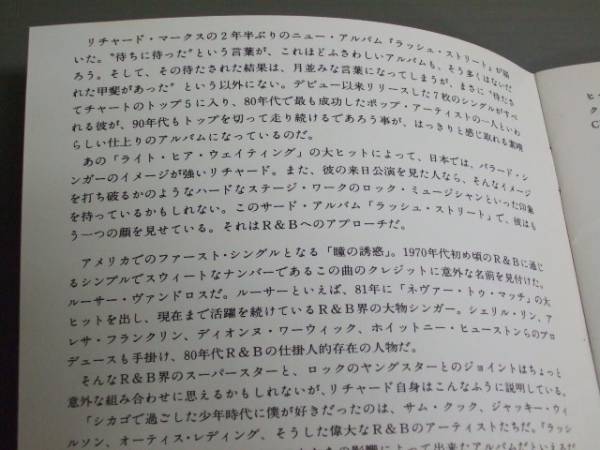 リチャード・マークスの2年半ぶりのニュー・アルバム『ラッシュ・ストリート』が届
いた。“待ちに待った”という言葉が、これほどふさわしいアルバムも、そう多くはないだ
ろう。そして、その待たされた結果は、月並みな言葉になってしまうが、まさに“待たさ
れた甲斐があった”という以外にない。デビュー以来リリースした7枚のシングルがすべ
てチャートのトップ5に入り、80年代で最も成功したポップ・アーティストの一人といわ
れる彼が、90年代もトップを切って走り続けるであろう事が、はっきりと感じ取れる素晴
らしい仕上りのアルバムになっているのだ。
あの「ライト・ヒア・ウェイティング」の大ヒットによって、日本では、バラード・シ
ンガーのイメージが強いリチャード。また、彼の来日公演を見た人なら、そんなイメージ
を打ち破るかのようなハードなステージ・ワークのロック・ミュージシャンといった印象
を持っているかもしれない。このサード・アルバム『ラッシュ・ストリート』で、彼はも
う一つの顔を見せている。それはR&Bへのアプローチだ。
アメリカでのファースト・シングルとなる「瞳の誘惑」。1970年代初め頃のR&Bに通じ
るシンプルでスウィートなナンバーであるこの曲のクレジットに意外な名前を見付けた。
ルーサー・ヴァンドロスだ。ルーサーといえば、81年に「ネヴァー・トゥ・マッチ」の大
ヒットを出し、現在まで活躍を続けているR&B界の大物シンガー。シェリル・リン、ア
レサ・フランクリン、ディオンヌ・ワーウィック、ホイットニー・ヒューストンらのプロ
デュースも手掛け、80年代R&Bの仕掛人的存在の人物だ。
そんなR&B界のスーパースターと、ロックのヤングスターとのジョイントはちょっと
意外な組み合わせに思えるかもしれないが、リチャード自身はこんなふうに説明している。
「シカゴで過ごした少年時代に僕が好きだったのは、サム・クック、ジャッキー・ウィ
ルソン、オーティス・レディング、そうした偉大なR&Bのアーティストたちだ。『ラッシ
影響によって出来たアルバムだといえるだ
ヒ・
ク
C